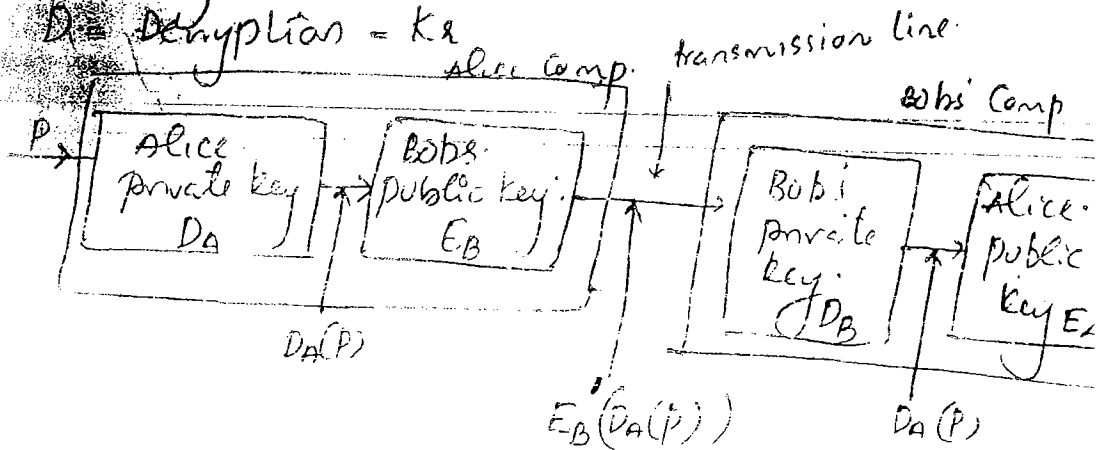 D = Decryption = Kr
Alice Comp.
transmission line.
Bobs' Comp
P
Alice
private key
DA
Bobs
public key.
EB
Bob's
private
key.
DB
Alice.
public
key EA
DA(P)
EB(DA(P))
DA(P)